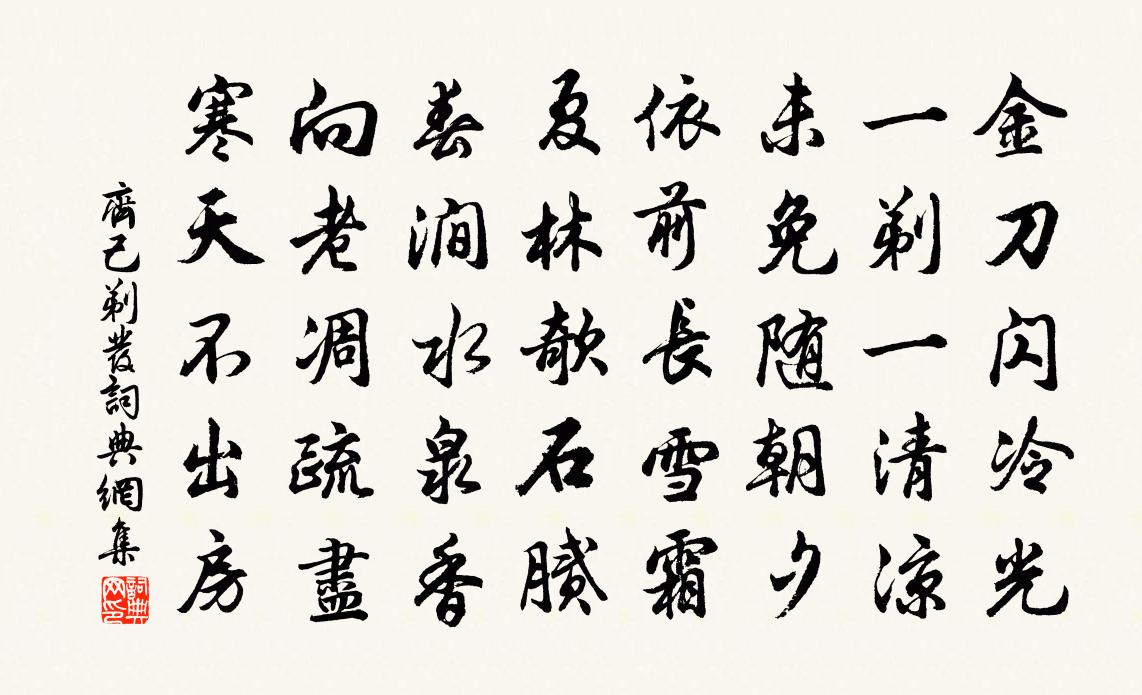 金刀闪冷光
一剃一清涼
未免随朝夕
依前長雪霜
夏林欹石膩
春澗水泉香
向老凋疏盡
寒天不出房
齊己剃發詞典網集
詞典网印